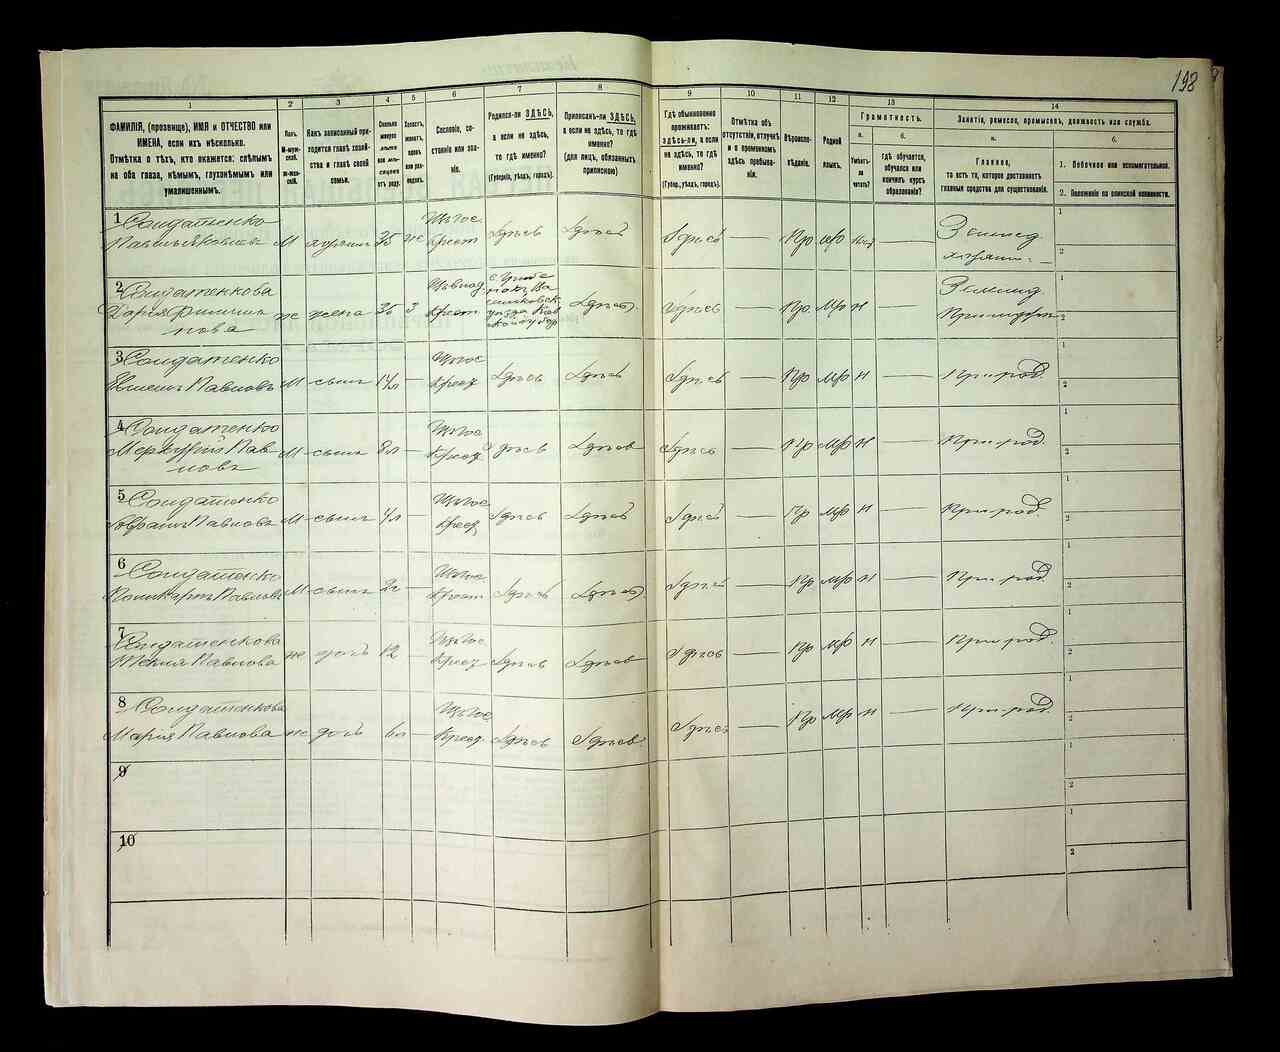 198
1
2
3
4
5
6
7
8
9
10
11
12
13
14
ФАМИЛІЯ, (прозвище), ИМЯ и ОТЧЕСТВО или
ИМЕНА, если ихъ нѣсколько.
Отмѣтка о тѣхъ, кто окажется: слѣпымъ
на оба глаза, нѣмымъ, глухонѣмымъ или
умалишеннымъ.
Полъ.
М-муж-
ской.
Ж-жен-
скій.
Какъ записанный при-
ходится главѣ хозяй-
ства и главѣ своей
семьи.
Сколько
минуло
лѣтъ
или мѣ-
сяцевъ
отъ роду.
Холостъ,
женатъ,
вдовъ
или раз-
веденъ.
Сословіе, со-
стояніе или зва-
ніе.
Родился-ли ЗДѢСЬ,
а если не здѣсь,
то гдѣ именно?
(Губернія, уѣздъ, городъ).
Приписанъ-ли ЗДѢСЬ,
а если не здѣсь, то гдѣ
именно?
(для лицъ, обязанныхъ
припискою)
Гдѣ обыкновенно
проживаетъ:
здѣсь-ли, а если
не здѣсь, то гдѣ
именно?
(Губер., уѣздъ, городъ).
Отмѣтка объ
отсутствіи, отлучкѣ
и о временномъ
здѣсь пребыва-
ніи.
Вѣроиспо-
вѣданіе.
Родной
языкъ.
Грамотность.
а.
Умѣетъ-
ли
читать?
б.
гдѣ обучается,
обучался или
кончилъ курсъ
образованія?
Занятіе, ремесло, промыселъ, должность или служба.
а.
Главное,
то есть то, которое доставляетъ
главныя средства для существованія.
б.
1. Побочное или вспомогательное.
2. Положеніе по воинской повинности.
1 Солдатенко
М хозяинъ 35 Крест Здѣсь Здѣсь Здѣсь — Пр мр —
1
2
2 Солдатенкова
Дарія Филип
пова ж жена 35 З Крест Здѣсь Здѣсь — Пр. мр н —
1
2
3 Солдатенко
Павловъ М сынъ 14л — Здѣсь Здѣсь Здѣсь — Пр мр н — При род.
1
2
4 Солдатенко
Меркурій Пав
ловъ М сынъ 8л — Здѣсь Здѣсь Здѣсь — Пр мр н — При род.
1
2
5 Солдатенко
Павловъ М сынъ 4л — Здѣсь Здѣсь Здѣсь — Пр мр н — При род.
1
2
6 Солдатенко
Поликарпъ Павловъ М сынъ 2г — Крест Здѣсь Здѣсь Здѣсь — Пр мр н — При род.
1
2
7 Солдатенкова
Павлова ж дочь 12 — Здѣсь Здѣсь Здѣсь — Пр мр н — При род.
1
2
8 Солдатенкова
Марія Павлова ж дочь 6л — Здѣсь Здѣсь Здѣсь — Пр мр н — При род.
1
2
9
1
2
10
1
2